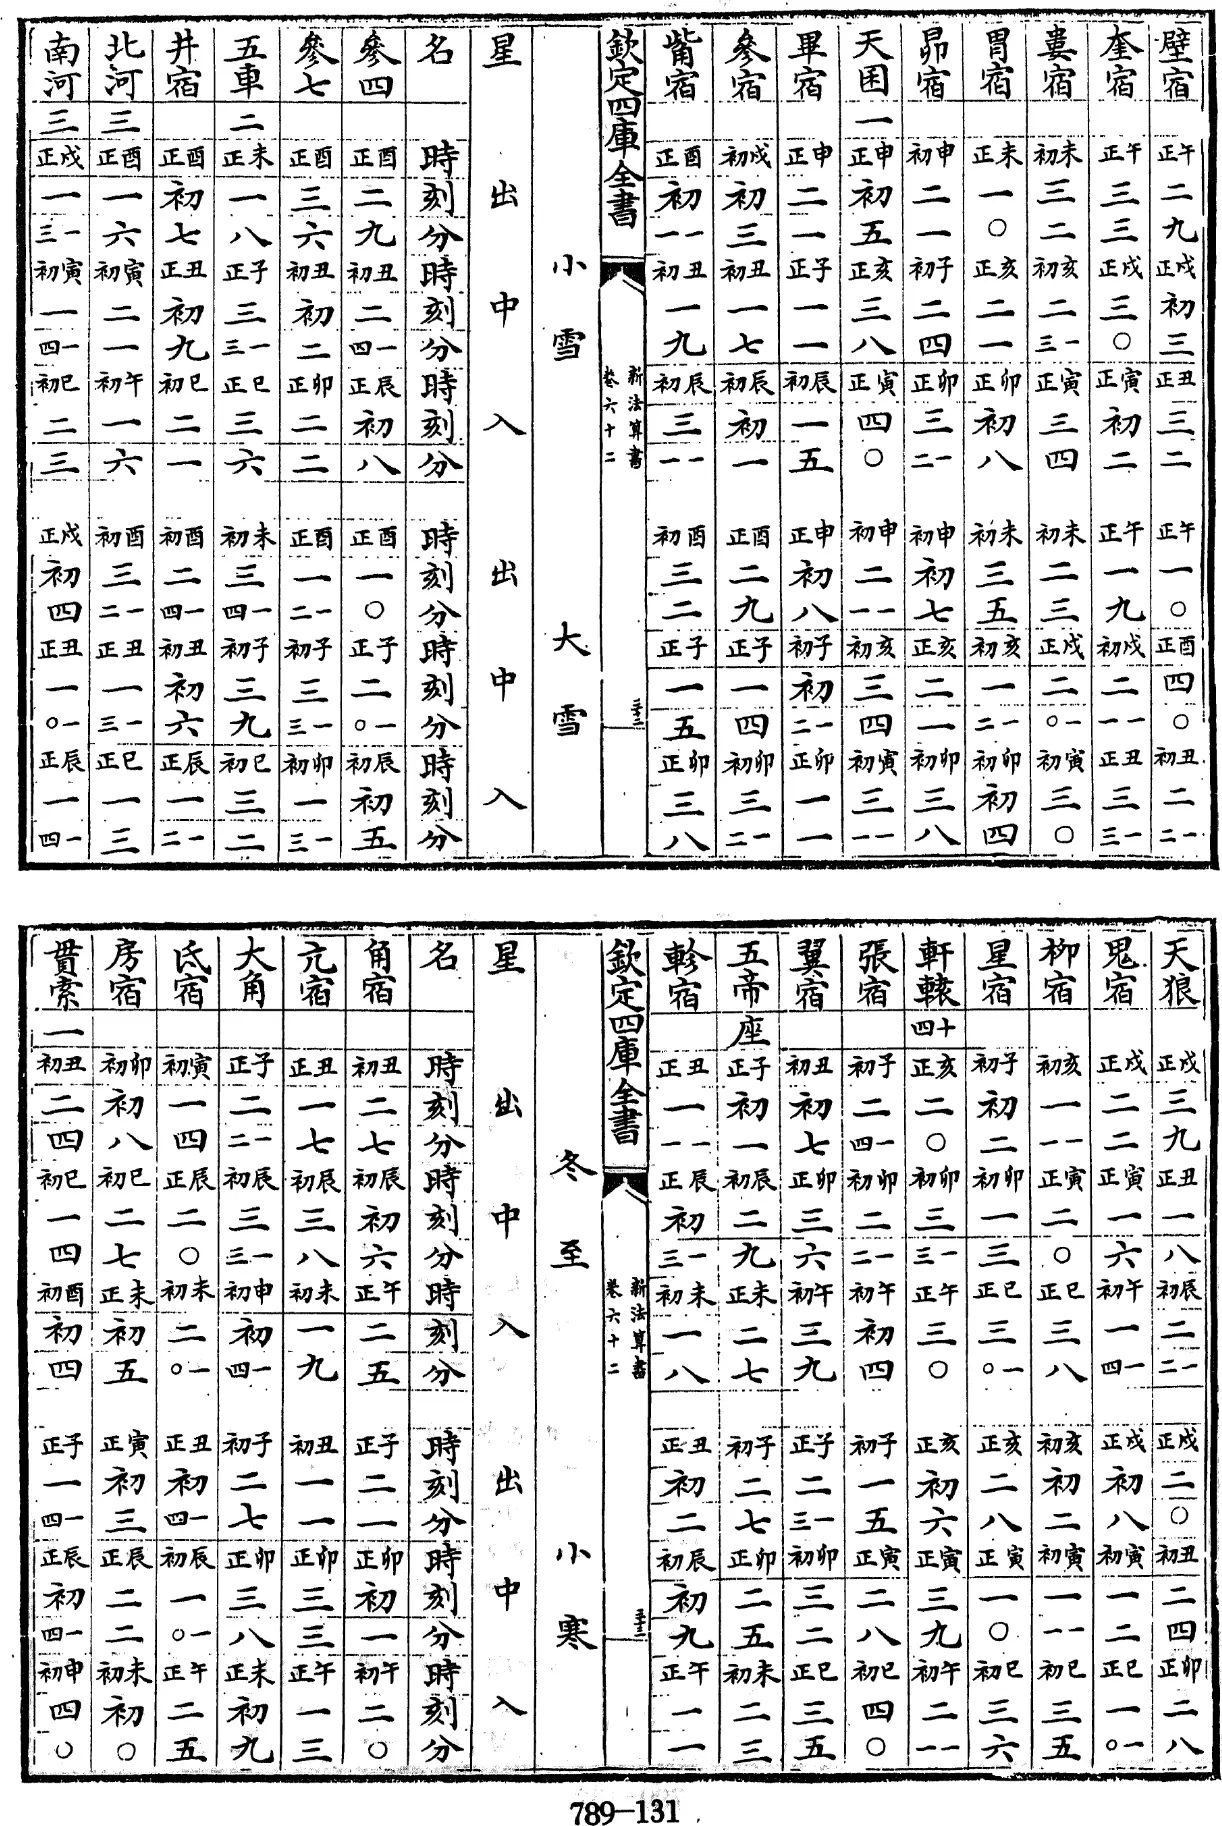 壁宿 午正 二 九 戌正 初 三 丑正 三 二 午正 一 〇 酉正 四 〇 丑初 二 一二
奎宿 午正 三 三 戌正 三 〇 寅正 初 二 午正 一 九 戌初 二 一一 丑正 三 一三
婁宿 未初 三 二 亥初 二 一三 寅正 三 四 未初 二 三 戌正 二 一〇 寅初 三 〇
胃宿 未正 一 〇 亥正 二 一 卯正 初 八 未初 三 五 亥初 一 一二 卯初 初 四
昴宿 申初 二 一 子初 二 四 卯正 三 一二 申初 初 七 亥正 二 一 卯初 三 八
天囷一 申正 初 五 亥正 三 八 寅正 四 〇 申初 二 一一 亥初 三 四 寅初 三 一一
畢宿 申正 二 一 子正 一 一 辰初 一 五 申正 初 八 子初 初 一二 卯正 一 一
參宿 戌初 初 三 丑初 一 七 辰初 初 一 酉正 二 九 子正 一 四 卯初 三 一二
觜宿 酉正 初 一一 丑初 一 九 辰初 三 一一 酉初 三 二 子正 一 五 卯正 三 八
欽定四庫全書
新法算書
卷六十二
小雪 大雪
星 出 中 入 出 中 入
名 時 刻 分 時 刻 分 時 刻 分 時 刻 分 時 刻 分 時 刻 分
參四 酉正 二 九 丑初 二 一四 辰正 初 八 酉正 一 〇 子正 二 一〇 辰初 初 五
參七 酉正 三 六 丑初 初 二 卯正 二 二 酉正 一 一二 子初 三 一三 卯初 一 一三
五車二 未正 一 八 子正 三 一三 巳正 三 六 未初 三 一四 子初 三 九 巳初 三 二
井宿 酉正 初 七 丑正 初 九 巳初 二 一 酉初 二 一四 丑初 初 六 辰正 一 一二
北河三 酉正 一 六 寅初 二 一 午初 一 六 酉初 三 一二 丑正 一 一三 巳正 一 三
南河三 戌正 一 一三 寅初 一 一四 巳初 二 三 戌正 初 四 丑正 一 一〇 辰正 一 一四
天狼 戌正 三 九 丑正 一 八 辰初 二 一二 戌正 二 〇 丑初 二 四 卯正 二 八
鬼宿 戌正 二 二 寅正 一 六 午初 一 一四 戌正 初 八 寅初 一 二 巳正 三 一〇
柳宿 亥初 一 一一 寅正 二 〇 巳正 三 八 亥初 初 二 寅初 一 一一 巳初 三 五
星宿 子初 初 二 卯初 一 三 巳正 三 一〇 亥正 二 八 寅正 一 〇 巳初 三 六
軒轅十四 亥正 二 〇 卯初 三 一三 午正 三 〇 亥正 初 六 寅正 三 九 午初 二 一一
張宿 子初 二 一四 卯初 二 一二 午初 初 四 子初 一 五 寅正 二 八 巳初 四 〇
翼宿 丑初 初 七 卯正 三 六 午初 三 九 子正 二 一三 卯初 三 二 巳正 三 五
五帝座 子正 初 一 辰初 二 九 未正 二 七 子初 二 七 卯正 二 五 未初 二 三
軫宿 丑正 一 一一 辰正 初 一三 未初 一 八 丑正 初 二 辰初 初 九 午正 一 一
欽定四庫全書
新法算書
卷六十二
冬至 小寒
星 出 中 入 出 中 入
名 時 刻 分 時 刻 分 時 刻 分 時 刻 分 時 刻 分 時 刻 分
角宿 丑初 二 七 辰初 初 六 午正 二 五 子正 二 一 卯正 初 一 午初 二 〇
亢宿 丑正 一 七 辰初 三 八 未初 一 九 丑初 一 一 卯正 三 三 午正 一 三
大角 子正 二 一二 辰初 三 一三 申初 初 一四 子初 二 七 卯正 三 八 未正 初 九
氐宿 寅初 一 四 辰正 二 〇 未初 二 一〇 丑正 初 一四 辰初 一 一〇 午正 二 五
房宿 卯初 初 八 巳初 二 七 未正 初 五 寅正 初 三 辰正 二 二 未初 初 〇
貫索一 丑初 二 四 巳初 一 四 酉初 初 四 子正 一 一四 辰正 初 一四 申初 四 〇
789-131